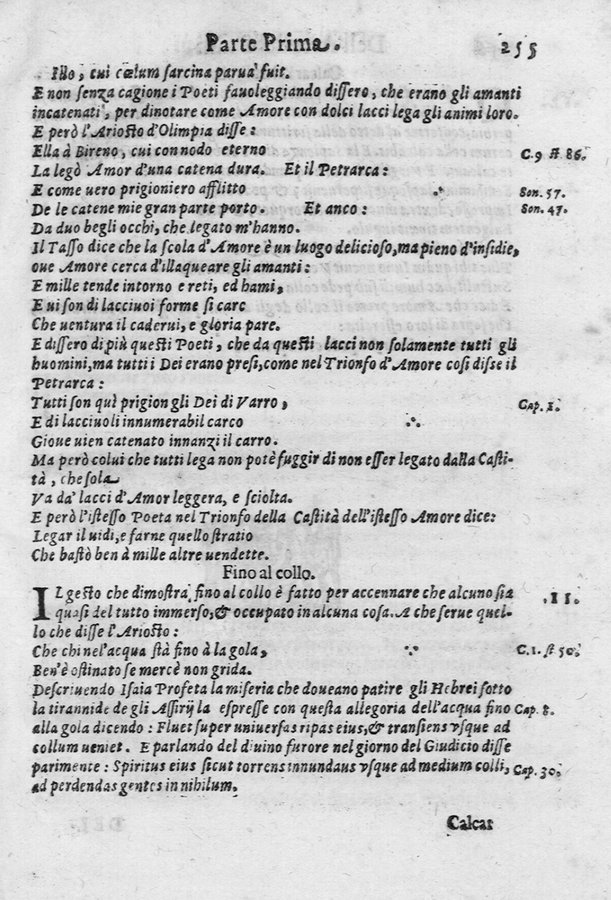 Parte Prima. 255
Illo, cui cœlum sarcina parua fuit.
E non senza cagione i Poeti fauoleggiando dissero, che erano gli amanti
incatenati, per dinotare come Amore con dolci lacci lega gli animi loro.
E però l'Ariosto d'Olimpia disse:
Ella à Bireno, cui con nodo eterno C.9 st 86.
La legò Amor d'una catena dura. Et il Petrarca:
E come uero prigioniero afflitto Son. 57.
De le catene mie gran parte porto. Et anco: Son. 47.
Da duo begli occhi, che legato m'hanno.
Il Tasso dice che la scola d'Amore è un luogo delicioso, ma pieno d'insidie,
oue Amore cerca d'illaqueare gli amanti:
E mille tende intorno e reti, ed hami,
E ui son di lacciuoi forme si care
Che uentura il caderui, e gloria pare.
E dissero di più questi Poeti, che da questi lacci non solamente tutti gli
huomini, ma tutti i Dei erano presi, come nel Trionfo d'Amore cosi disse il
Petrarca:
Tutti son quì prigion gli Dei di Varro, Cap. 1.
E di lacciuoli innumerabil carco
Gioue uien catenato innanzi il carro.
Ma però colui che tutti lega non potè fuggir di non esser legato dalla Casti-
tà, che sola
Va da' lacci d'Amor leggera, e sciolta.
E però l'istesso Poeta nel Trionfo della Castità dell'istesso Amore dice:
Legar il uidi, e farne quello stratio
Che bastò ben à mille altre uendette.
Fino al collo.
IL gesto che dimostra fino al collo è fatto per accennare che alcuno sia .11.
quasi del tutto immerso, & occupato in alcuna cosa. A che serue quel-
lo che disse l'Ariosto:
Che chi nel'acqua stà fino à la gola, C.1. st 50.
Ben'è ostinato se mercè non grida.
Descriuendo Isaia Profeta la miseria che doueano patire gli Hebrei sotto
la tirannide de gli Assirij la espresse con questa allegoria dell'acqua fino Cap. 8.
alla gola dicendo: Fluet super uniuersas ripas eius, & transiens vsque ad
collum ueniet. E parlando del diuino furore nel giorno del Giudicio disse
parimente: Spiritus eius sicut torrens innundans vsque ad medium colli, Cap. 30.
ad perdendas gentes in nihilum.
Calcar